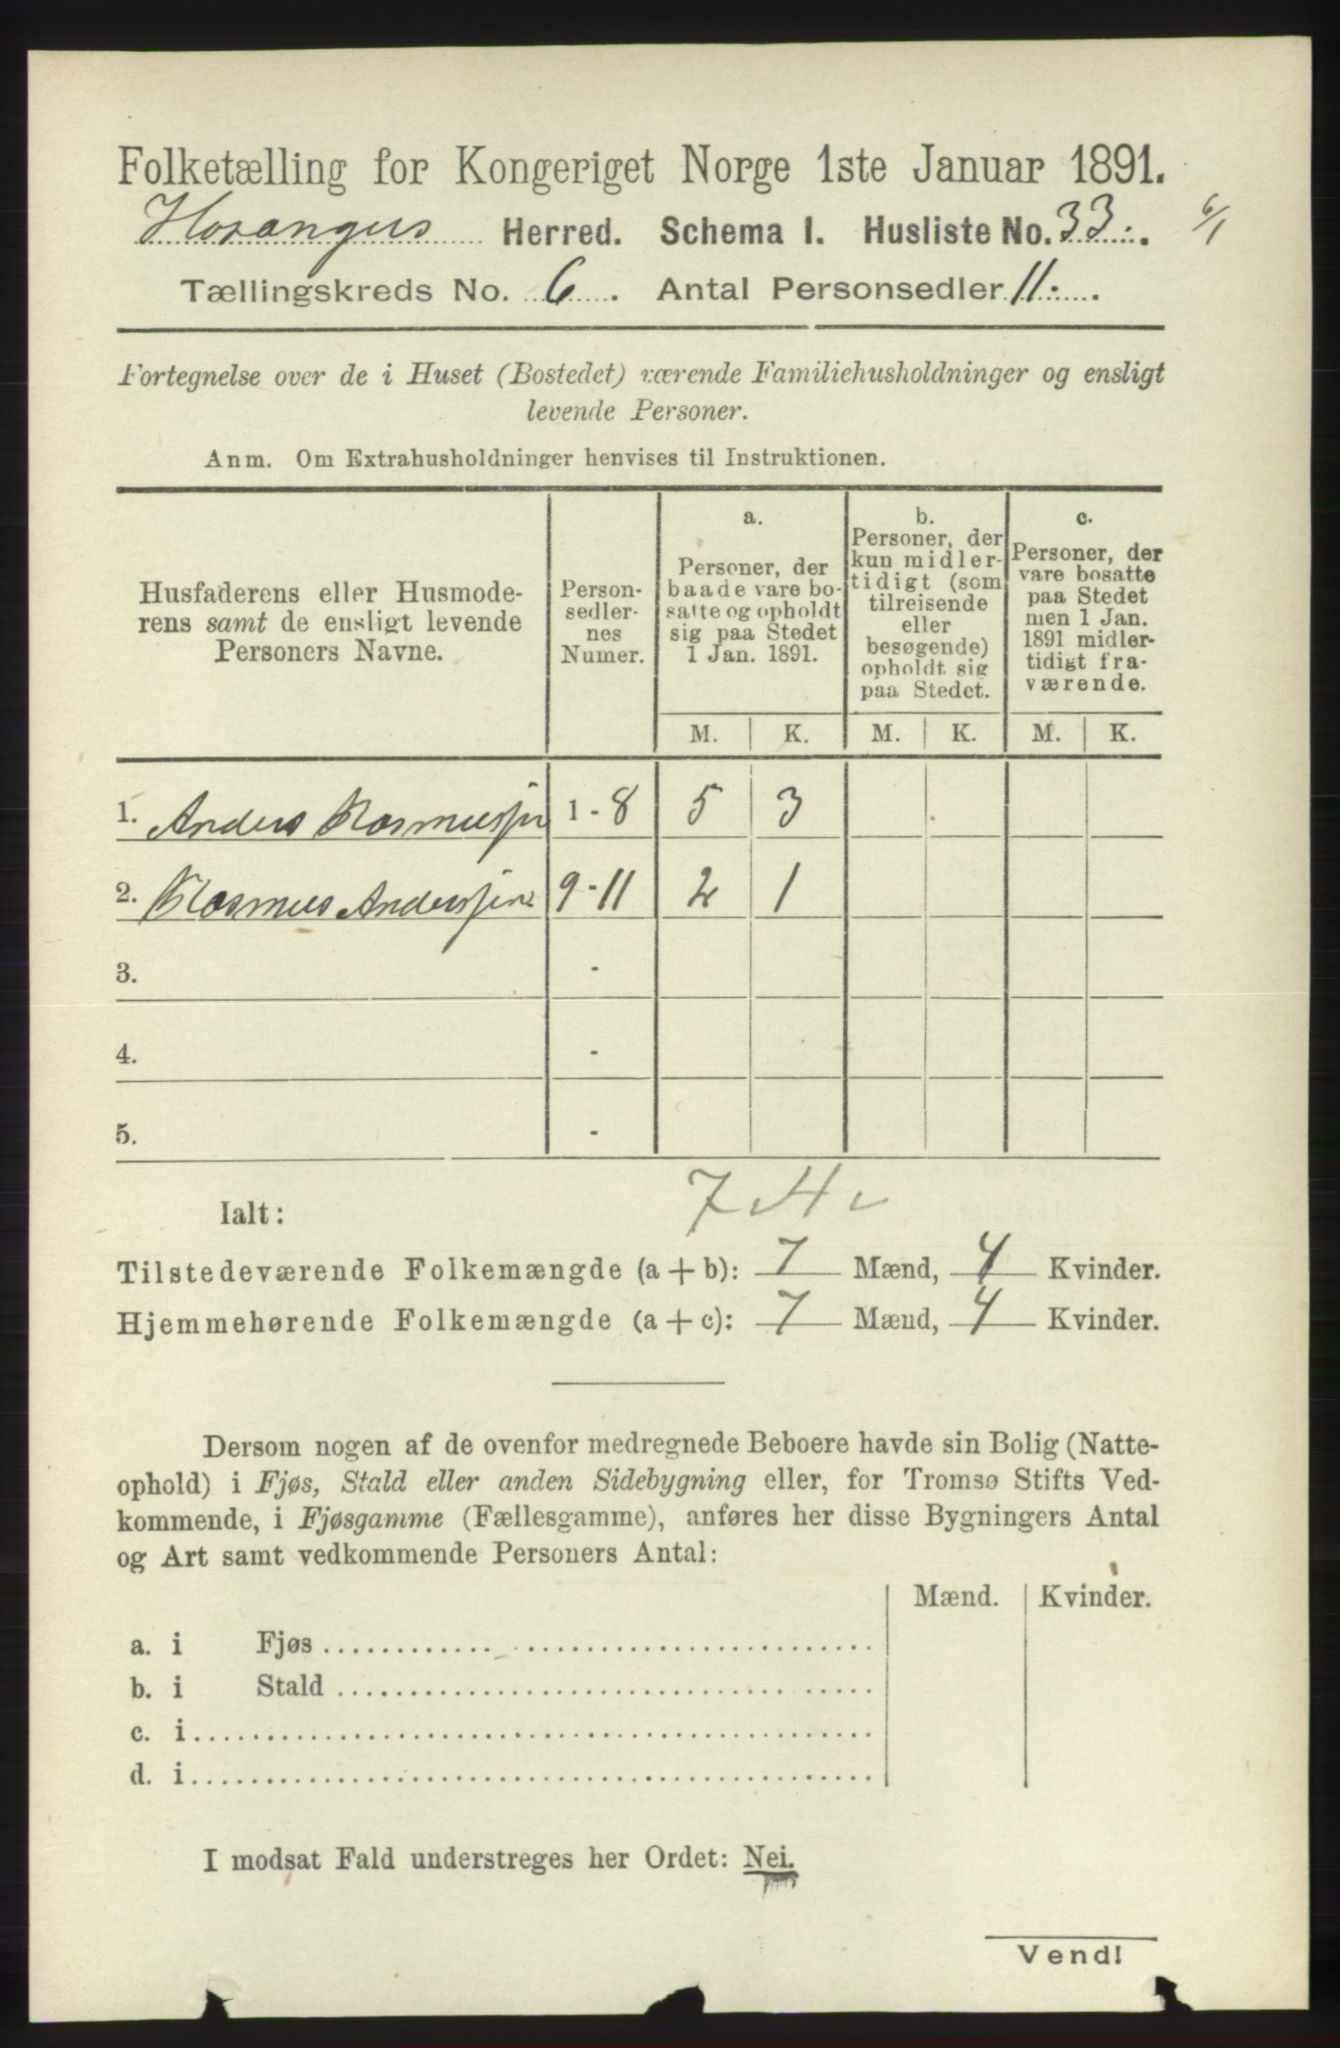 Folketælling for Kongeriget Norge 1ste Januar 1891.
Hosangers Herred. Schema I. Husliste No. 33. 6/1
Tællingskreds No. 6. Antal Personsedler 11.
Fortegnelse over de i Huset (Bostedet) værende Familiehusholdninger og ensligt
levende Personer.
Anm. Om Extrahusholdninger henvises til Instruktionen.
Husfaderens eller Husmode-
rens samt de ensligt levende
Personers Navne.
Person-
sedler-
nes
Numer.
a.
Personer, der
baade vare bo-
satte og opholdt
sig paa Stedet
1 Jan. 1891.
b.
Personer, der
kun midler-
tidigt (som
tilreisende
eller
besøgende)
opholdt sig
paa Stedet.
c.
Personer, der
vare bosatte
paa Stedet
men 1 Jan.
1891 midler-
tidigt fra-
værende.
M. K. M. K. M. K.
1. Anders Rasmussen 1 - 8 5 3
2. Rasmus Anderssen 9 - 11 2 1
3. -
4. -
5. -
7 4
Ialt:
Tilstedeværende Folkemængde (a + b): 7 Mænd, 4 Kvinder.
Hjemmehørende Folkemængde (a + c): 7 Mænd, 4 Kvinder.
Dersom nogen af de ovenfor medregnede Beboere havde sin Bolig (Natte-
ophold) i Fjøs, Stald eller anden Sidebygning eller, for Tromsø Stifts Ved-
kommende, i Fjøsgamme (Fællesgamme), anføres her disse Bygningers Antal
og Art samt vedkommende Personers Antal:
Mænd. Kvinder.
a. i Fjøs
b. i Stald
c. i
d. i
I modsat Fald understreges her Ordet: Nei.
Vend!